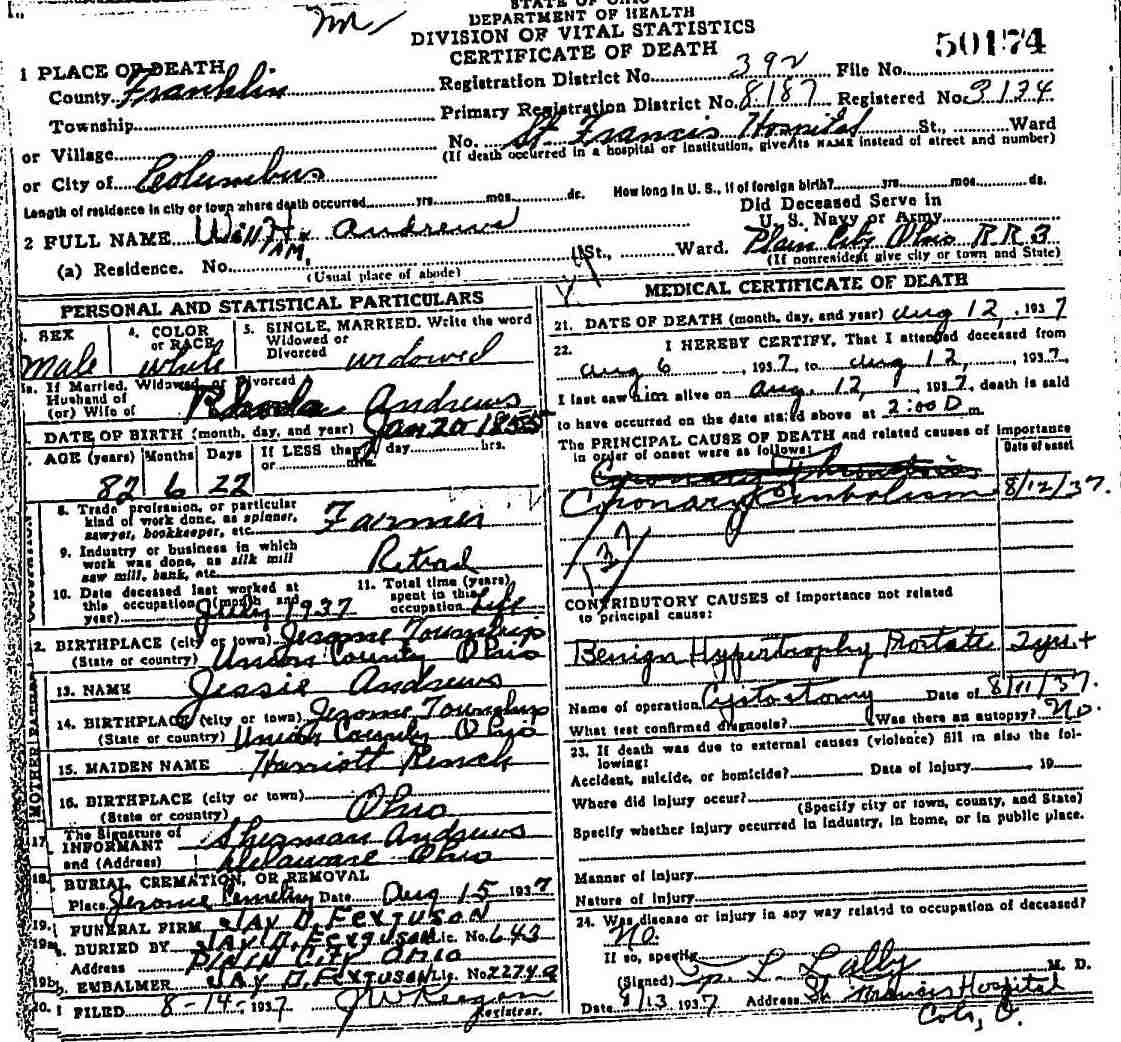 STATE OF OHIO
DEPARTMENT OF HEALTH
DIVISION OF VITAL STATISTICS
CERTIFICATE OF DEATH
50174
1 PLACE OF DEATH
County Franklin Registration District No. 392 File No.
Township Primary Registration District No. 8187 Registered No. 3134
or Village No. St Francis Hospital St., Ward
or City of Columbus (If death occurred in a hospital or institution, give its NAME instead of street and number)
Length of residence in city or town where death occurred yrs. mos. ds. How long in U. S., if of foreign birth? yrs. mos. ds.
Did Deceased Serve in
U. S. Navy or Army
2 FULL NAME Will H. Andrews
IAM,
(a) Residence. No. St., Ward. Plain City Ohio R R 3
(Usual place of abode) (If nonresident give city or town and State)
PERSONAL AND STATISTICAL PARTICULARS
SEX 4. COLOR or RACE 5. SINGLE, MARRIED. Write the word Widowed or Divorced
Male white widowed
5a. If Married, Widowed or Divorced
Husband of
(or) Wife of Rhoda Andrews
DATE OF BIRTH (month, day, and year) Jan 20 1855
AGE (years) Months Days If LESS than 1 day hrs.
or min.
82 6 22
8. Trade profession, or particular
kind of work done, as spinner,
sawyer, bookkeeper, etc. Farmer
9. Industry or business in which
work was done, as silk mill
saw mill, bank, etc. Retired
10. Date deceased last worked at
this occupation (month and
year) July 1937
11. Total time (years)
spent in this
occupation Life
2. BIRTHPLACE (city or town) Jerome Township
(State or country) Union County Ohio
13. NAME Jessie Andrews
14. BIRTHPLACE (city or town) Jerome Township
(State or country) Union County Ohio
15. MAIDEN NAME Harriott
16. BIRTHPLACE (city or town)
(State or country) Ohio
MOTHER FATHER
17. The Signature of
INFORMANT Sherman Andrews
and (Address) Delaware Ohio
18. BURIAL, CREMATION, OR REMOVAL
Place Jerome Cemetery Date Aug 15 1937
19. FUNERAL FIRM JAY D. FERGUSON
19a. BURIED BY JAY D. FERGUSON Lic. No. 643
Address PLAIN CITY OHIO
19b. EMBALMER JAY D. FERGUSON Lic. No. 2274 A
20. FILED 8-14- 1937 J W Keegan
Registrar.
MEDICAL CERTIFICATE OF DEATH
21. DATE OF DEATH (month, day, and year) Aug 12, 1937
22. I HEREBY CERTIFY, That I attended deceased from
Aug 6, 1937, to Aug 12, 1937,
I last saw him alive on Aug. 12, 1937, death is said
to have occurred on the date stated above at 2:00 m.
The PRINCIPAL CAUSE OF DEATH and related causes of importance
in order of onset were as follows: Date of onset
Coronary Embolism 8/12/37.
CONTRIBUTORY CAUSES of importance not related
to principal cause:
Benign Hypertrophy Prostate 2yrs +
Name of operation Cystostomy Date of 8/11/37.
What test confirmed diagnosis? Was there an autopsy? No.
23. If death was due to external causes (violence) fill in also the fol-
lowing:
Accident, suicide, or homicide? Date of injury , 19
Where did injury occur?
(Specify city or town, county, and State)
Specify whether injury occurred in industry, in home, or in public place.
Manner of injury
Nature of injury
24. Was disease or injury in any way related to occupation of deceased?
No.
If so, specify
(Signed) P. L. Lally M. D.
Date 8/13 1937 Address St Francis Hospital
Cols, O.